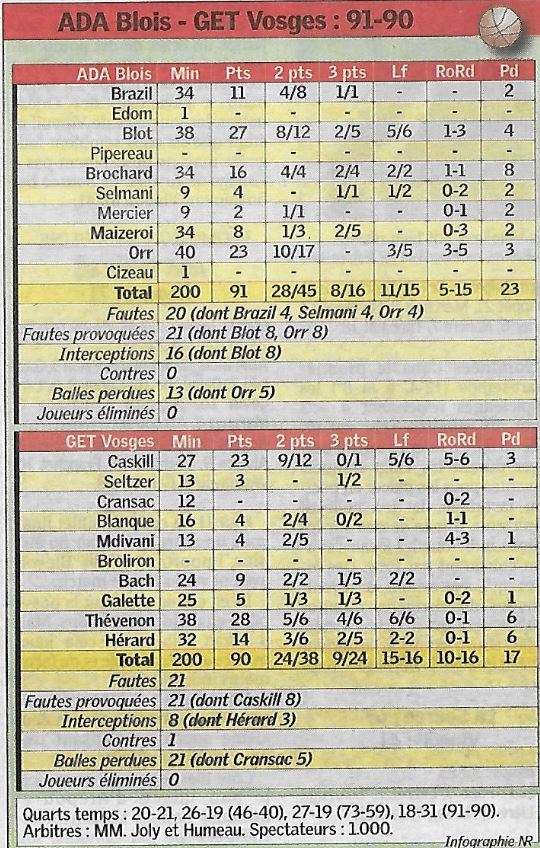 ADA Blois - GET Vosges : 91-90
ADA Blois Min Pts 2 pts 3 pts Lf RoRd Pd
Brazil 34 11 4/8 1/1 - - 2
Edom 1 - - - - - -
Blot 38 27 8/12 2/5 5/6 1-3 4
Pipereau - - - - - - -
Brochard 34 16 4/4 2/4 2/2 1-1 8
Selmani 9 4 - 1/1 1/2 0-2 2
Mercier 9 2 1/1 - - 0-1 2
Maizeroi 34 8 1/3 2/5 - 0-3 2
Orr 40 23 10/17 - 3/5 3-5 3
Cizeau 1 - - - - - -
Total 200 91 28/45 8/16 11/15 5-15 23
Fautes 20 (dont Brazil 4, Selmani 4, Orr 4)
Fautes provoquées 21 (dont Blot 8, Orr 8)
Interceptions 16 (dont Blot 8)
Contres 0
Balles perdues 13 (dont Orr 5)
Joueurs éliminés 0
GET Vosges Min Pts 2 pts 3 pts Lf RoRd Pd
Caskill 27 23 9/12 0/1 5/6 5-6 3
Seltzer 13 3 - 1/2 - - -
Cransac 12 - - - - 0-2 -
Blanque 16 4 2/4 0/2 - 1-1 -
Mdivani 13 4 2/5 - - 4-3 1
Broliron - - - - - - -
Bach 24 9 2/2 1/5 2/2 - -
Galette 25 5 1/3 1/3 - 0-2 1
Thévenon 38 28 5/6 4/6 6/6 0-1 6
Hérard 32 14 3/6 2/5 2-2 0-1 6
Total 200 90 24/38 9/24 15-16 10-16 17
Fautes 21
Fautes provoquées 21 (dont Caskill 8)
Interceptions 8 (dont Hérard 3)
Contres 1
Balles perdues 21 (dont Cransac 5)
Joueurs éliminés 0
Quarts temps : 20-21, 26-19 (46-40), 27-19 (73-59), 18-31 (91-90).
Arbitres : MM. Joly et Humeau. Spectateurs : 1.000.
Infographie NR